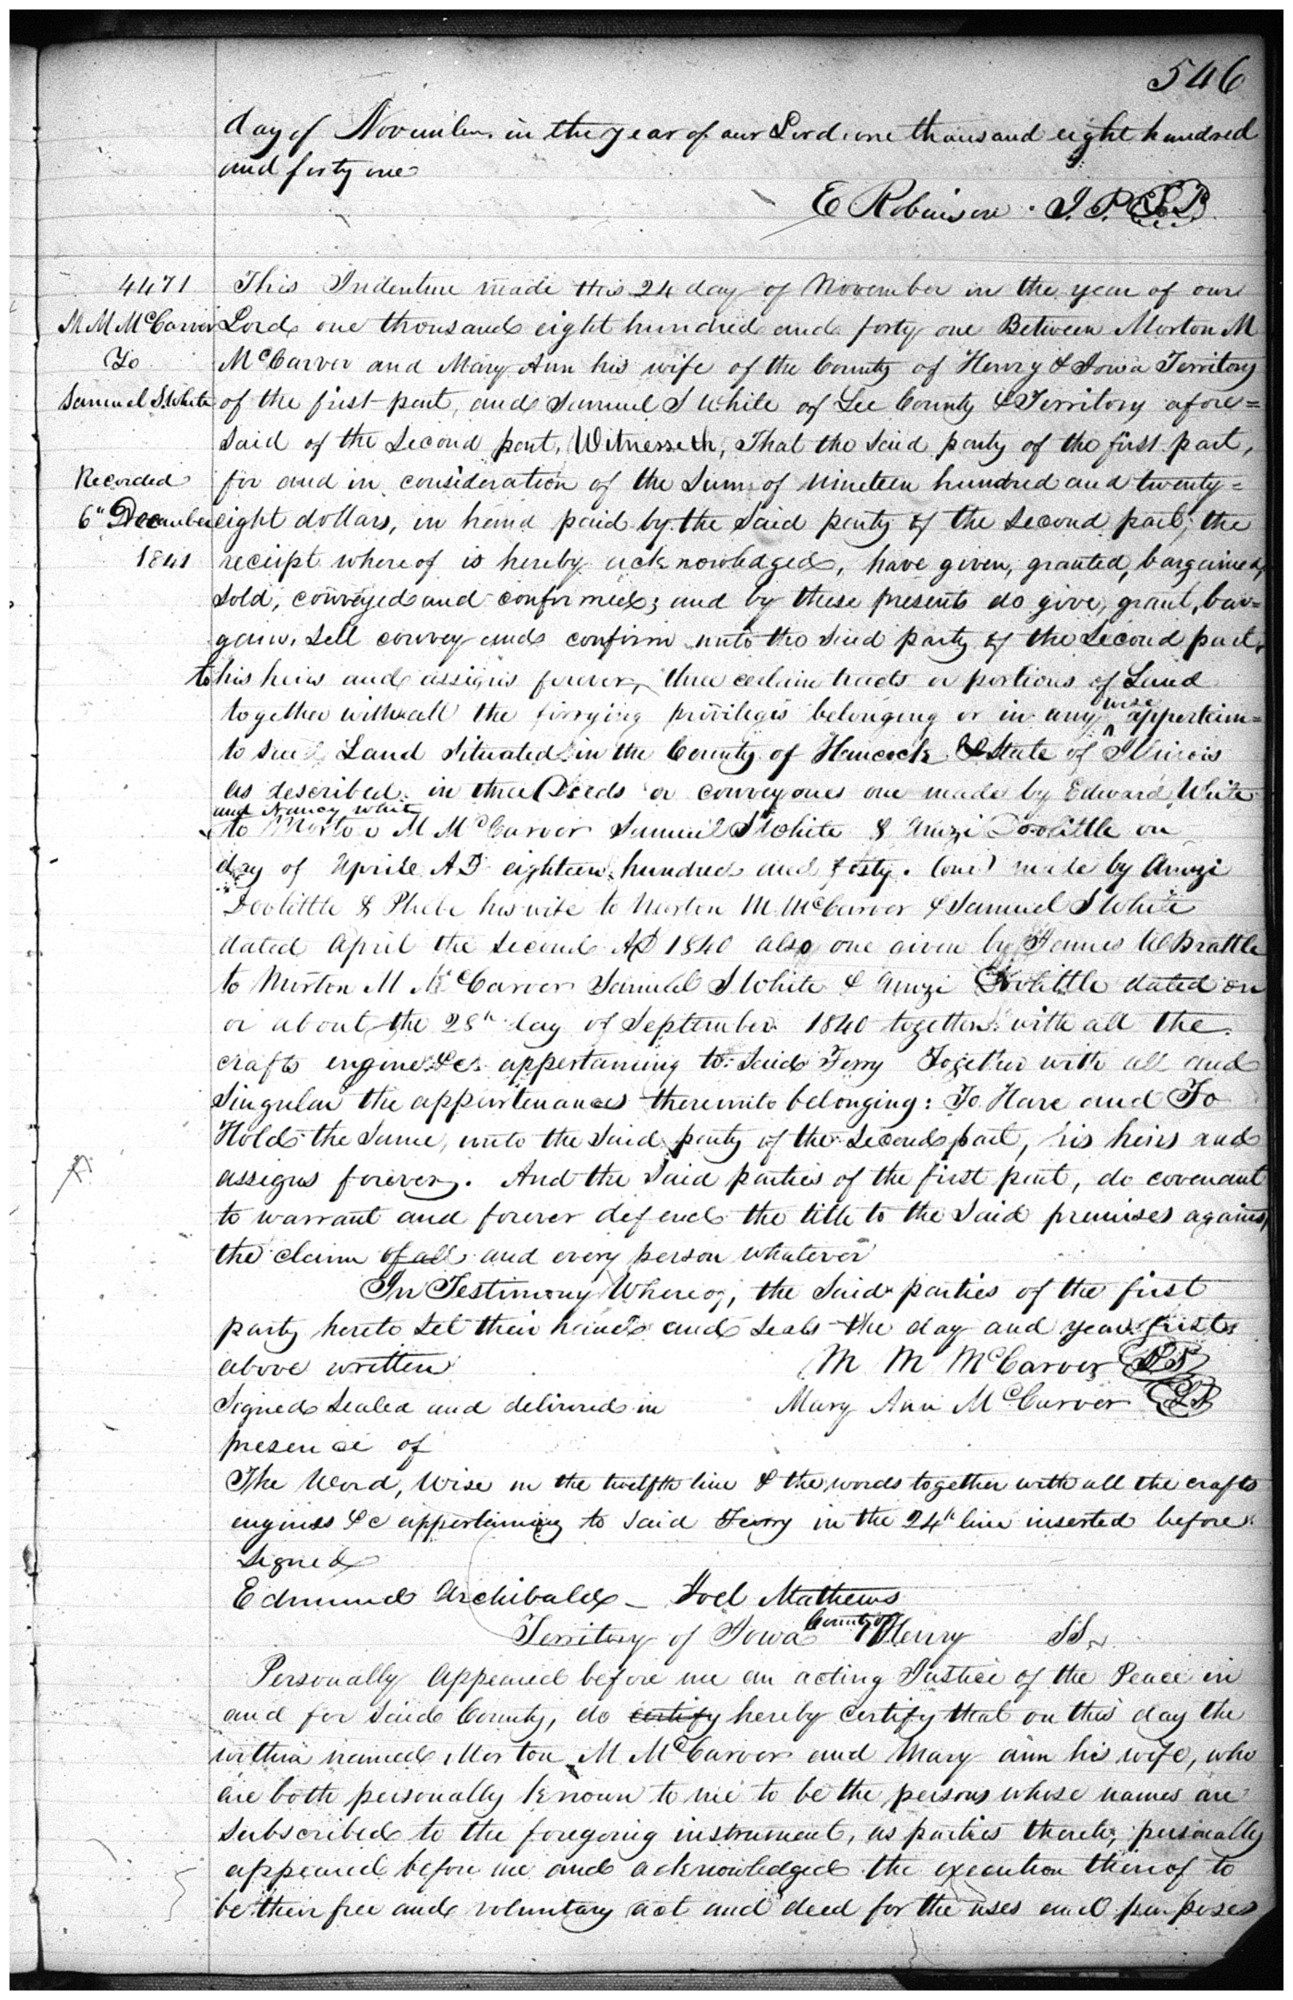 546
day of November in the year of our Lord one thousand eight hundred
and forty one
E Robinson . J. P.
4471
M M McCarver
To
Samuel S. White
Recorded
6" December
1841
This Indenture made this 24 day of November in the year of our
Lord one thousand eight hundred and forty one Between Morton M
McCarver and Mary Ann his wife of the County of Henry & Iowa Territory
of the first part, and Samuel S White of Lee County & Territory afore=
said of the second part, Witnesseth, That the said party of the first part,
for and in consideration of the sum of nineteen hundred and twenty=
eight dollars, in hand paid by the said party of the second part, the
receipt whereof is hereby acknowledged, have given, granted, bargained,
sold, conveyed and confirmed; and by these presents do give, grant, bar=
gain, sell convey and confirm unto the said party of the second part,
to his heirs and assigns forever, three certain tracts or portions of Land
together with all the ferrying privileges belonging or in any wise appertain=
to said Land situated in the County of Hancock & State of Illinois
as described in three Deeds or conveyones one made by Edward White
and Nancy White
to Morton M McCarver Samuel S White & Amzi Doolittle on
day of Aprile AD eighteen hundred and forty. (one) made by Amzi
Doolittle & Phebe his wife to Morton M. McCarver & Samuel S White
dated April the second AD 1840 also one given by James W Brattle
to Morton M McCarver Samuel S White & Amzi Doolittle dated on
or about the 28th day of September 1840 together with all the
crafts engine &c. appertaining to said Ferry Together with all and
singular the appurtenances thereunto belonging: To Have and To
Hold the same, unto the said party of the second part, his heirs and
assigns forever. And the said parties of the first part, do covenant
to warrant and forever defend the title to the said premises against
the claim of all and every person whatever
In Testimony Whereof, the said parties of the first
party hereto set their hands and seals the day and year first
above written
M M McCarver LS
Signed sealed and delivered in
Mary Ann McCarver LS
presence of
The Word, Wise in the twelfth line & the words together with all the crafts
engines &c appertaining to said Ferry in the 24th line inserted before
signed
Edmund Archibald - Joel Mathews
Territory of Iowa County of Henry SS
Personally Appeared before me an acting Justice of the Peace in
and for said County, do certify hereby certify that on this day the
within named Morton M McCarver and Mary ann his wife, who
are both personally known to me to be the persons whose names are
subscribed to the foregoing instrument, as parties thereto, personally
appeared before me and acknowledged the execution thereof to
be their free and voluntary act and deed for the uses and purposes